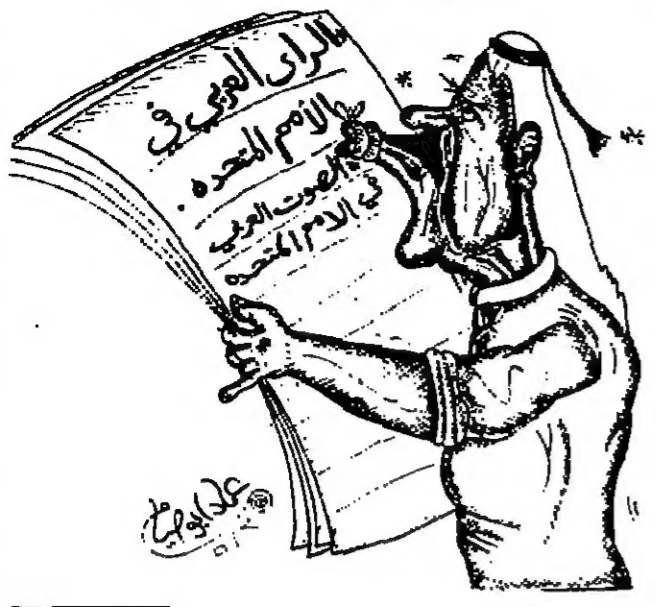 الراى العربي في
الأمم المتحده .
الصوت العربي
في الامم المتحده